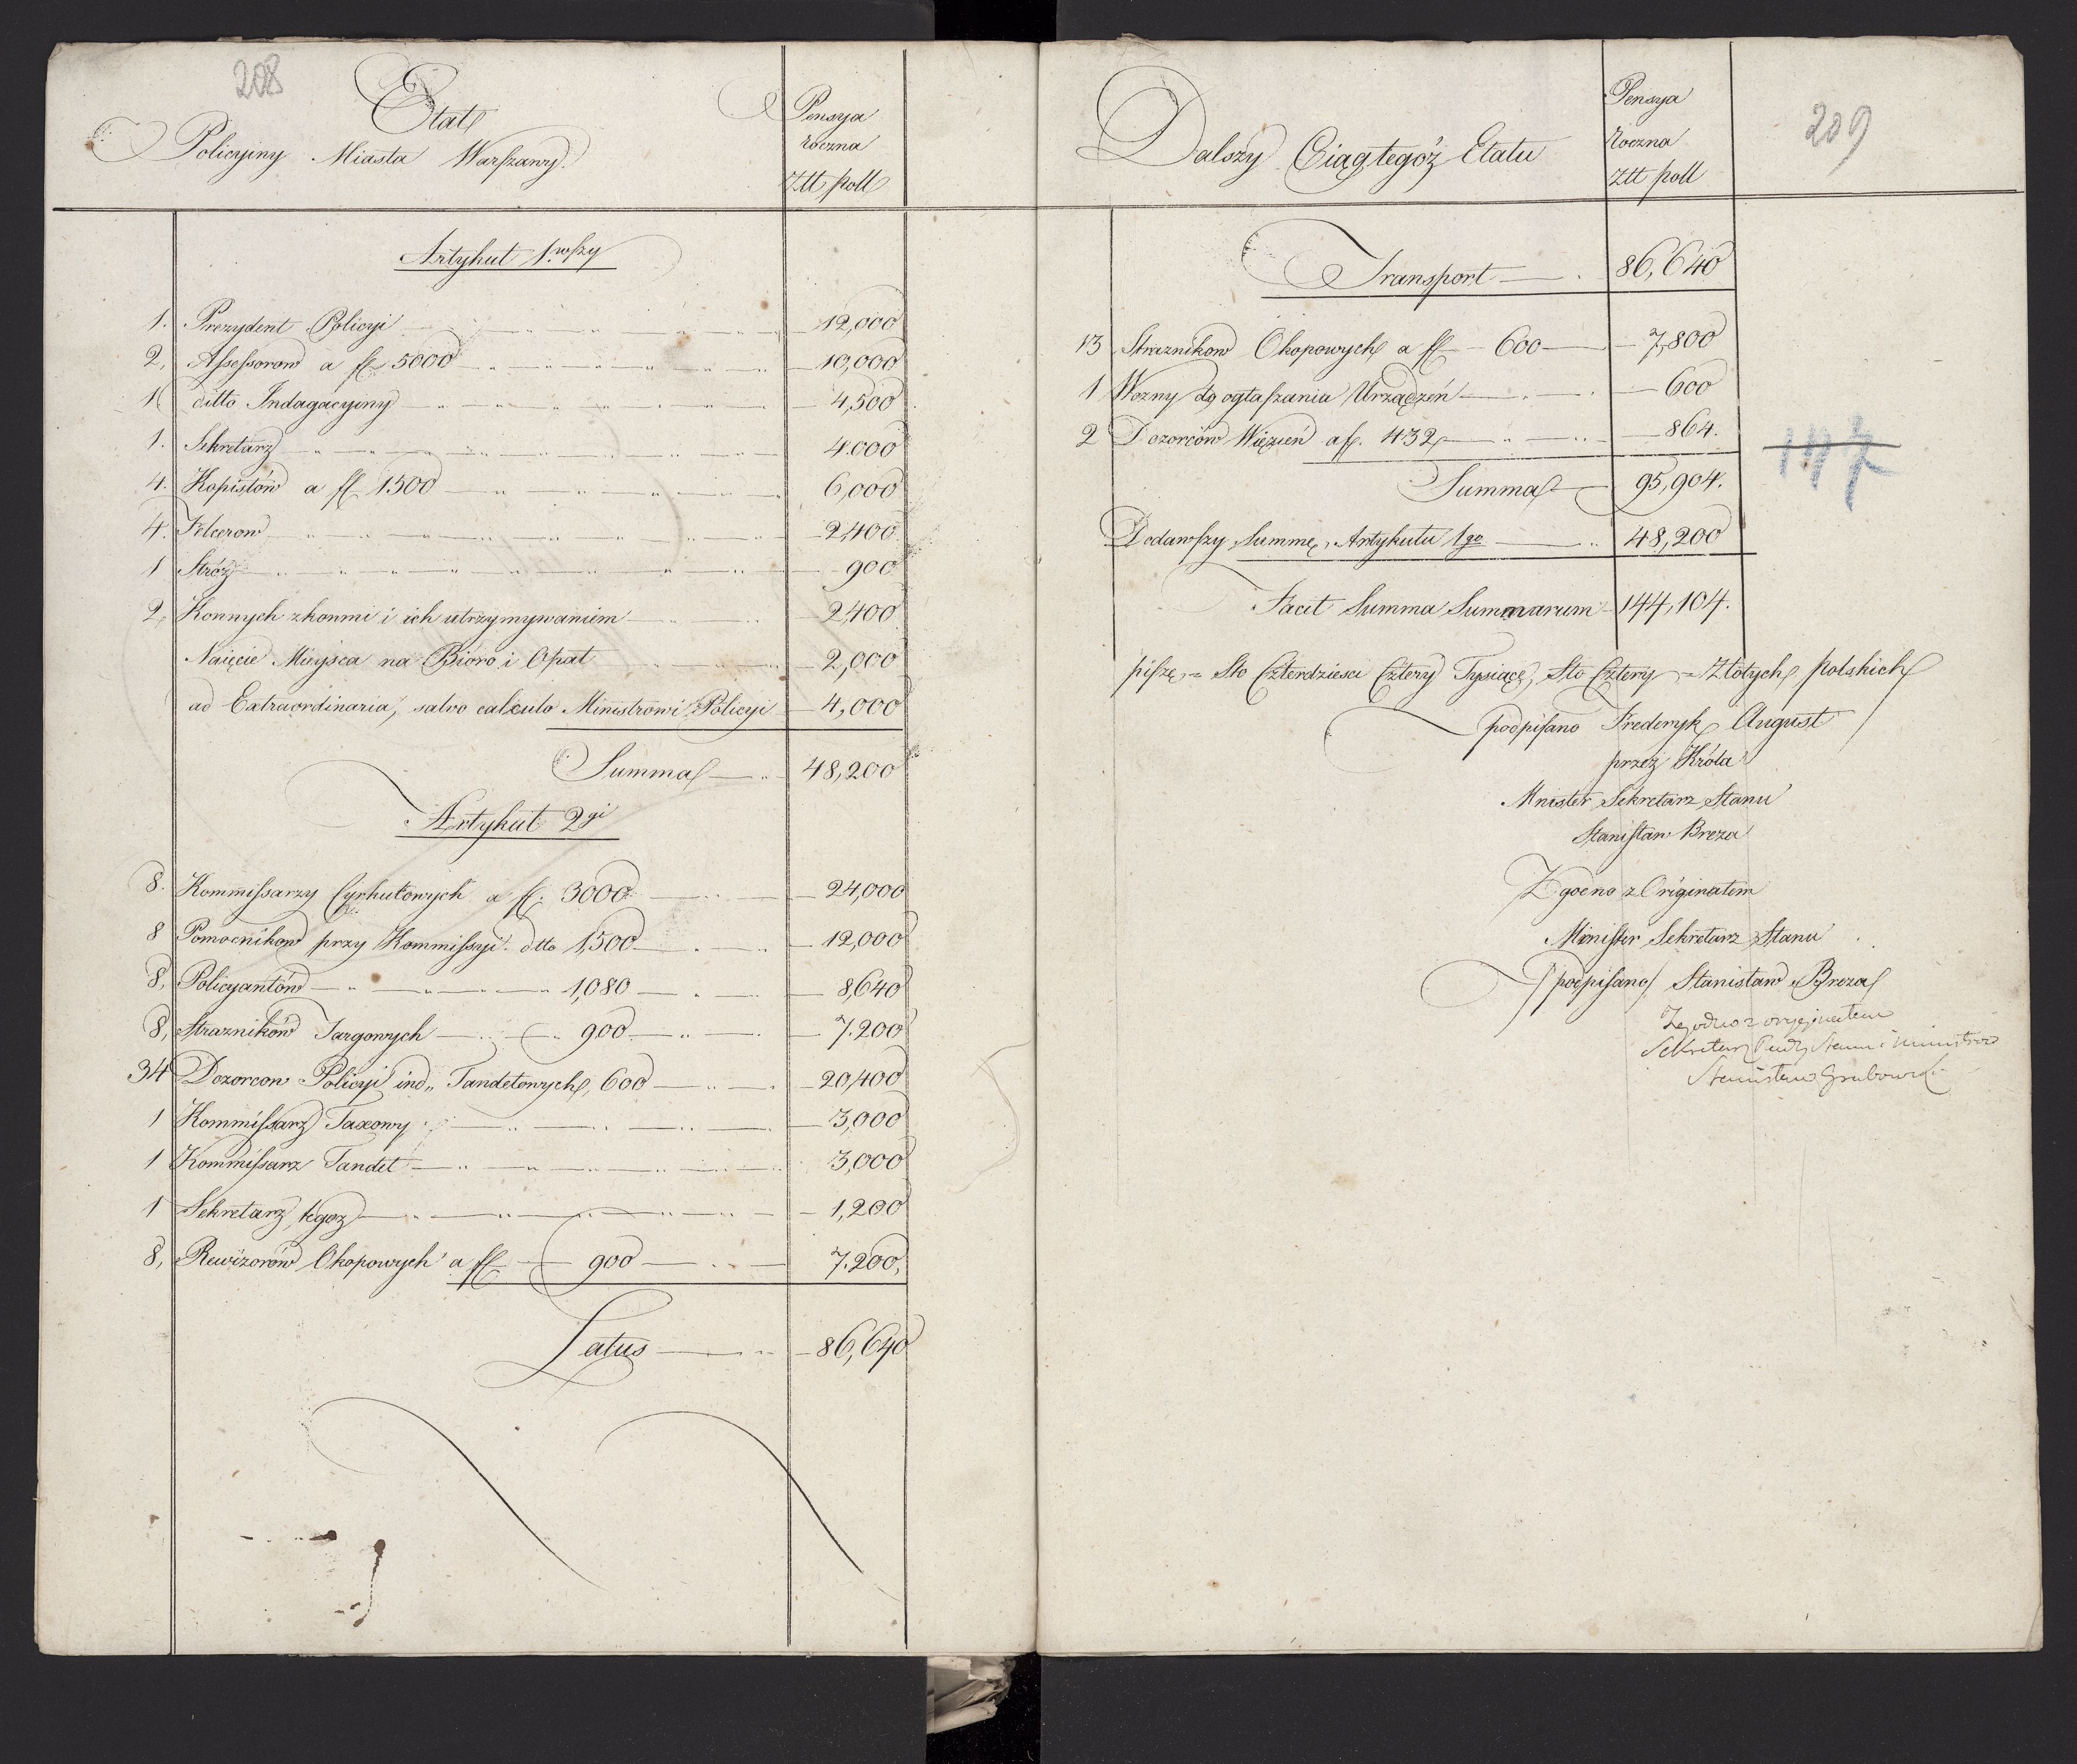 208
Etat
Policyiny Miasta Warszawy.
Pensya
roczna
Ztt poll
Artykuł 1.wszy
1. Prezydent Policyi 12,000
2, Assessorow a fl 5000 10,000
1 ditto Indagacyiny 4,500
1. Sekretarz 4.000
4. Kopistów a fl 1500 6,000
4. Felcerow 2,400
1 Stróz 900
2, Konnych z konmi i ich utrzymywaniem 2,400
Naięcie Mieysca na Bióro i Opał 2,000
ad Extraordinaria, salvo calculo Ministrowi Policyi 4,000
Summa 48,200
Artykuł 2gi
8. Kommissarzy Cyrkułowych a fl: 3000 24,000
8 Pomocnikow przy Kommissyi. dtto 1,500 12,000
8, Policyantów 1,080 8,640
8, Strazników Targowych 900 7.200
34 Dozorcow Policyi ind„ Tandetowych, 600 20,400
1 Kommissarz Taxowy 3,000
1 Kommissarz Tandet 3,000
1 Sekretarz tegoz 1,200
8, Rewizorów Okopowych a fl 900 7.200,
Latus 86,640
Dalszy Ciąg tegóż Etatu
Pensya
roczna
ztt poll
209
Transport 86,640
13 Straznikow Okopowych a fl 600 7,800
1 Wozny do ogłaszania Urządzeń 600
2 Dozorców Więzień a f. 432 864.
147
Summa 95,904.
Dodawszy Summę Artykułu 1go 48,200
Facit Summa Summarum 144,104.
piszę = Sto Czterdziesci Cztery Tysiące, Sto Cztery = Złotych polskich
podpisano Frederyk August
przez Króla
Mnister Sekretarz Stanu
Stanisław Breza
Zgodno z Originałem
Minister Sekretarz Stanu
/podpisano/ Stanisław Breza
Zgodno z oryginałem
Sekretarz Rady Stanu i Ministrów
Stanisław Grabowski